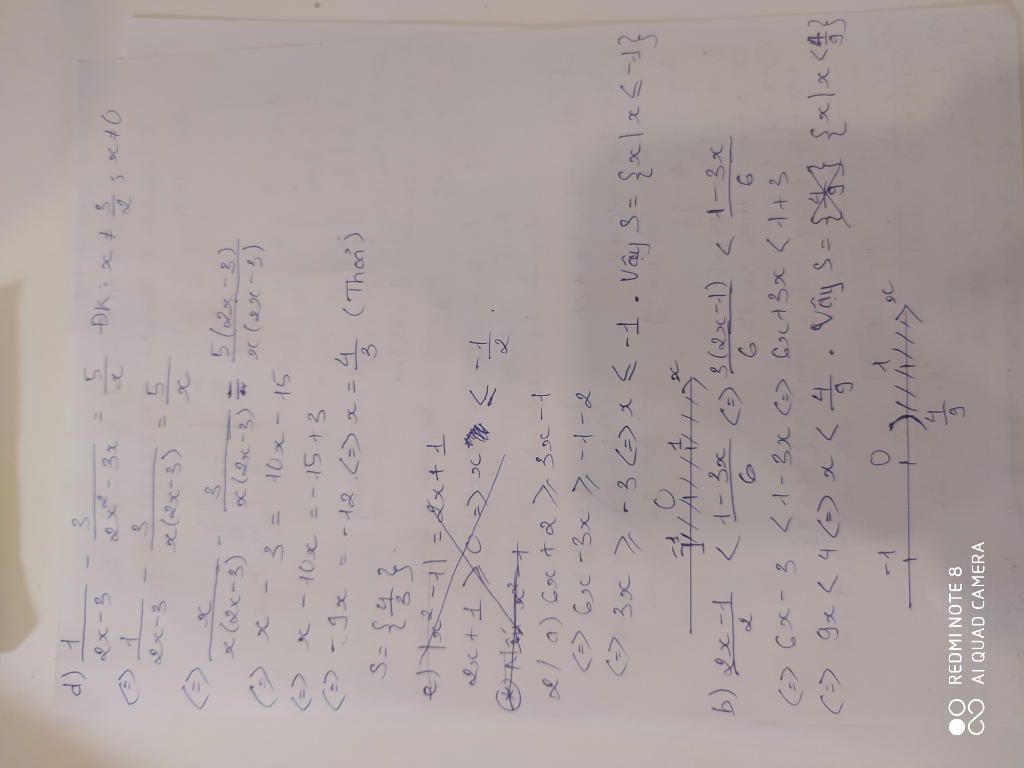 d) 1/(2x-3) - 3/(2x² - 3x) = 5/x ĐK: x ≠ 3/2 ; x ≠ 0
(=) 1/(2x-3) - 3/(x(2x-3)) = 5/x
(=) x/(x(2x-3)) - 3/(x(2x-3)) = 5(2x-3)/(x(2x-3))
(=) x - 3 = 10x - 15
(=) x - 10x = -15 + 3
(=) -9x = -12 (=) x = 4/3 (Thỏa)
S = {4/3}.
e) |x² - 1| = 2x + 1
2x + 1 ≥ 0 => x ≤ -1/2.
2/ a) 6x + 2 ≥ 3x - 1
(=) 6x - 3x ≥ -1 - 2
(=) 3x ≥ -3 (=) x ≤ -1. Vậy S = {x | x ≤ -1}
-1 0 1 x
b) (2x-1)/2 < (1-3x)/6 (=) 3(2x-1)/6 < (1-3x)/6
(=) 6x - 3 < 1 - 3x (=) 6x + 3x < 1 + 3
(=) 9x < 4 (=) x < 4/9. Vậy S = {4/9} {x | x < 4/9}
-1 0 4/9 1 x
REDMI NOTE 8
AI QUAD CAMERA